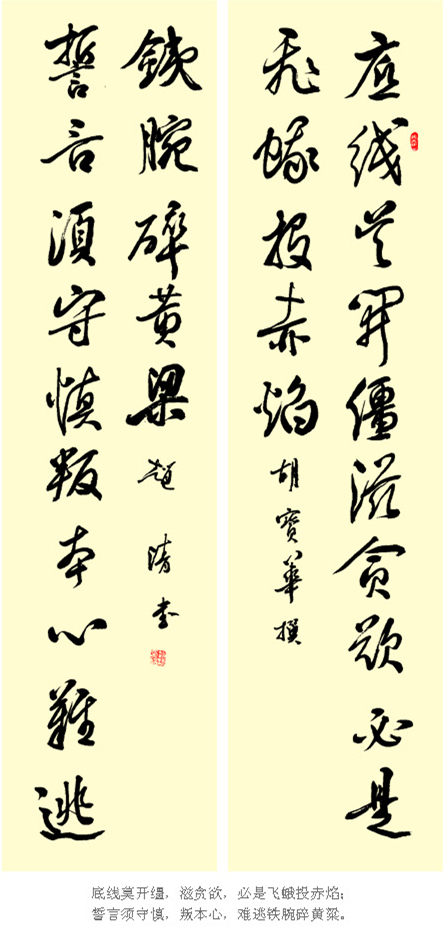 底线莫開僵滋贪欲必是
飛蛾投赤焰 胡寶華撰
誓言須守慎叛本心難逃
鉄腕碎黄梁 趙清書
底线莫开缰，滋贪欲，必是飞蛾投赤焰；
誓言须守慎，叛本心，难逃铁腕碎黄粱。